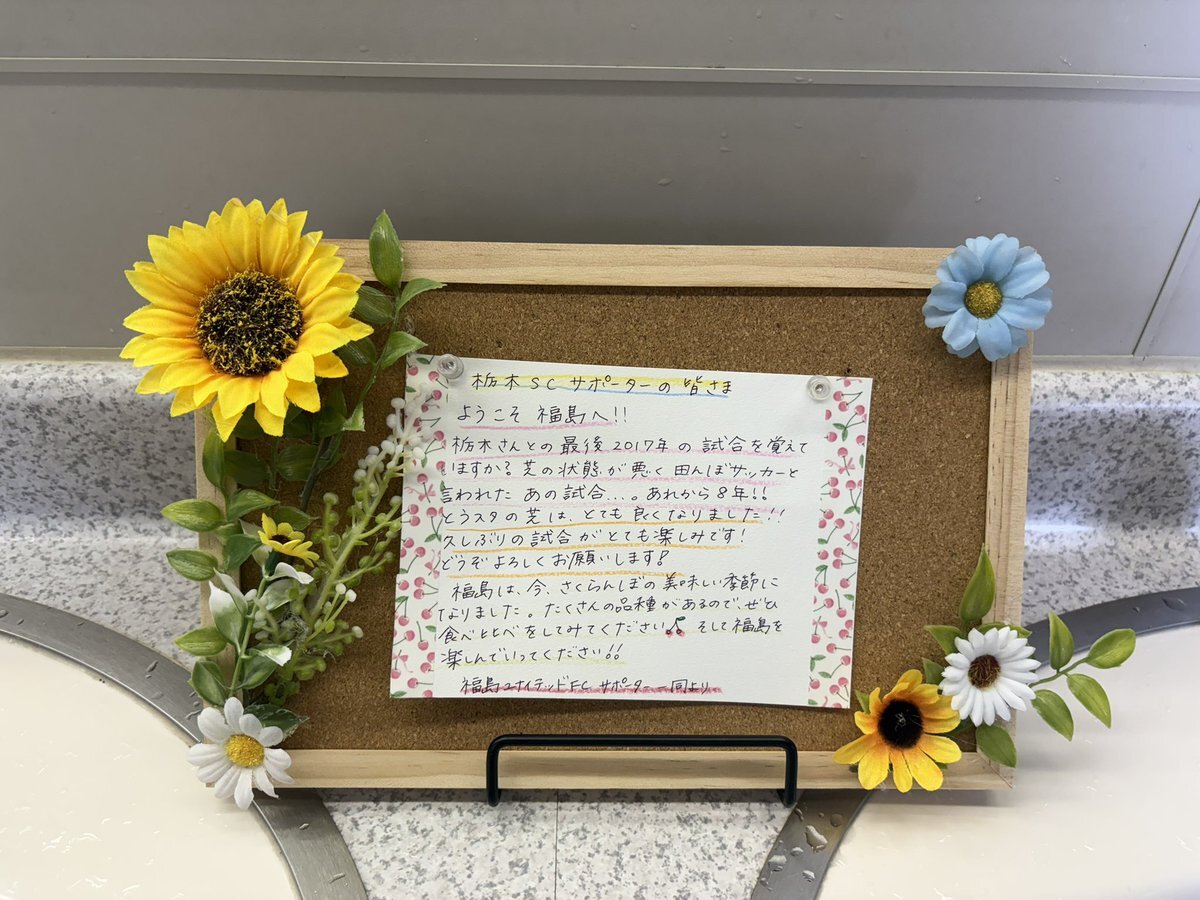 栃木SCサポーターの皆さま
ようこそ福島へ!!
栃木さんとの最後2017年の試合を覚えて
いますか?芝の状態が悪く田んぼサッカーと
言われたあの試合...。あれから8年!!
とうスタの芝は、とても良くなりました!!
久しぶりの試合がとても楽しみです!
どうぞよろしくお願いします!
福島は、今、さくらんぼの美味しい季節に
なりました。たくさんの品種があるので、ぜひ
食べ比べをしてみてください🍒そして福島を
楽しんでいってください!!
福島ユナイテッドFCサポーター一同より